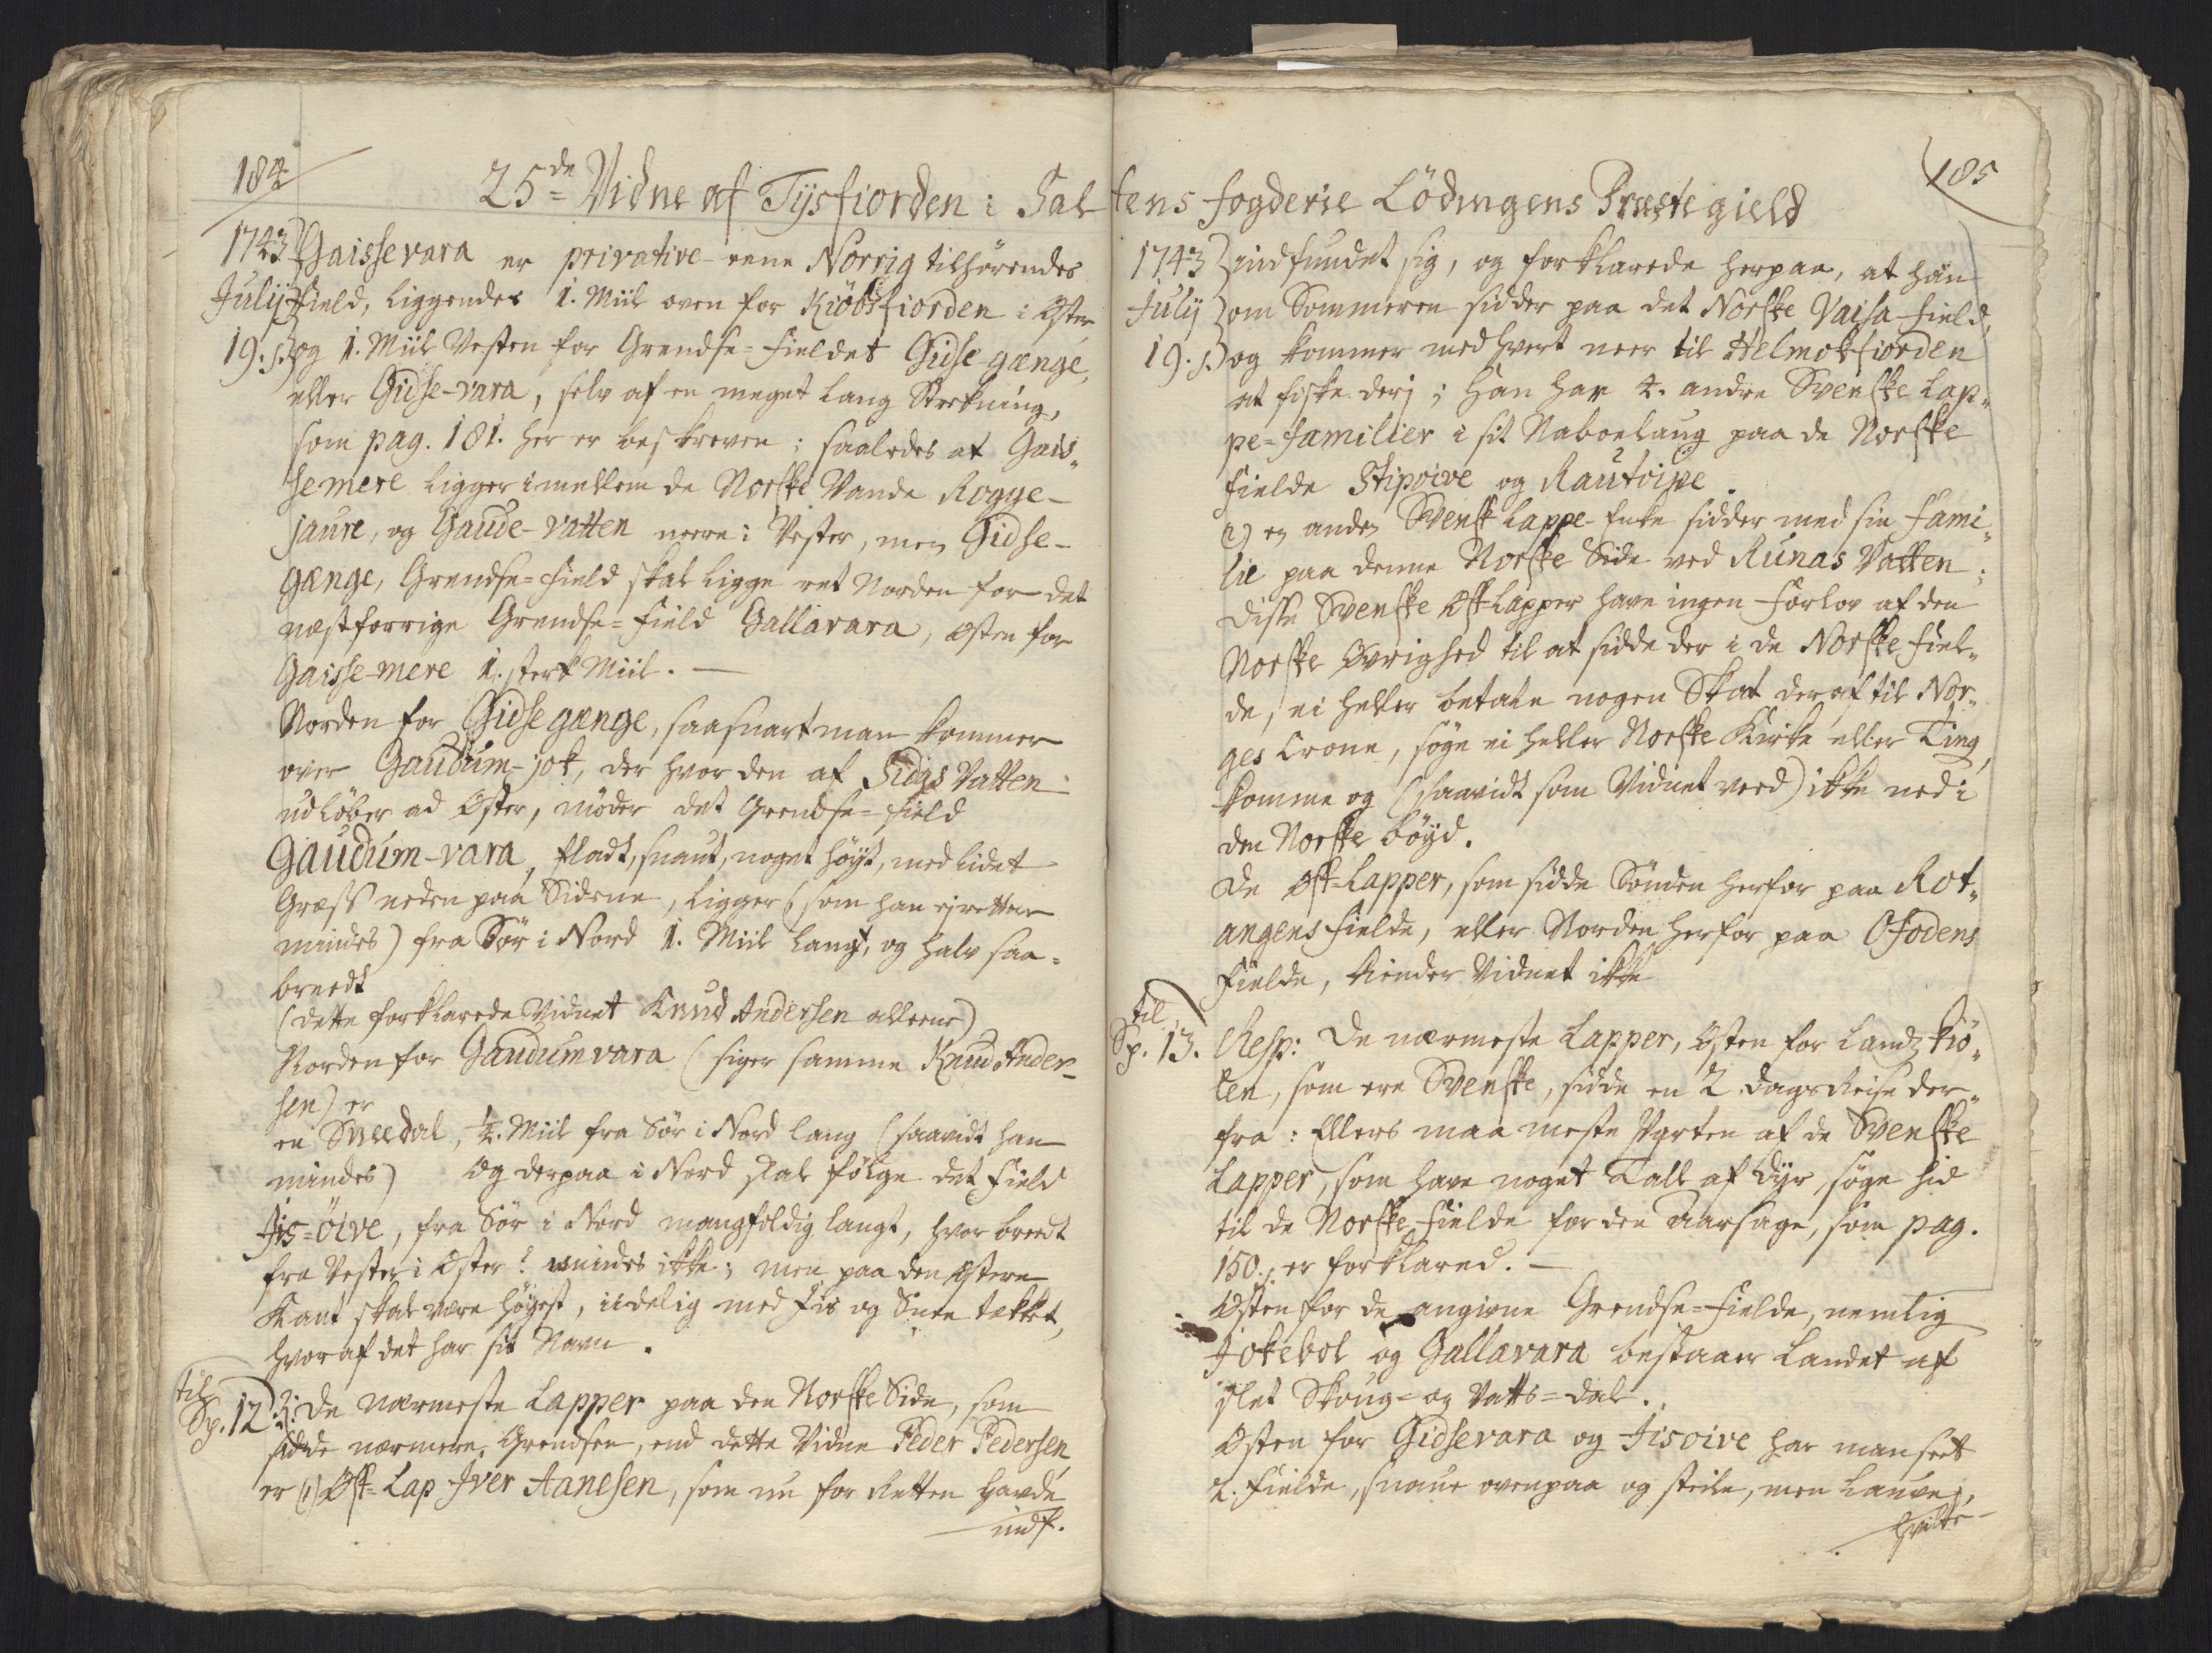 184
25de Vidne af Tysfiorden i Sal
1743 Gaissevara er privative eene Norrig tilhørendes
Julij field, liggendes 1. Miil oven for Kiöbsfiorden i Øster
19. s. og 1. Miil Vesten for Grendse-fieldet Gidse gænge,
eller Gidse-vara, selv af en meget lang Strekning,
som pag. 181. her er beskreven; saaledes at Gais„
semere ligger imellem de Norske Vande Rogge-
jaure, og Gaude-vatten neere i Vester, men Gidse-
gænge, Grendse-field skal ligge ret Norden for det
næstforrige Grendse-field Gallavara, Østen for
Gaisse-mere 1. sterk Miil. —
Norden for Gidse gænge, saasnart man kommer
over Gaudum-jok, der hvor den af Sidas Vatten
udløber ad Øster, møder det Grendse-field
Gaudum-vara, fladt, snaut, noget høyt, med lidet
Græss neden paa Siderne, ligger (som han ej rettere
mindes) fra Sør i Nord 1. Miil langt, og halv saa-
breedt
(dette forklarede Vidnet Knud Andersen alleene)
Norden for Gaudumvara (siger samme Knud Ander-
sen) er
en Sneedal, ½. Miil fra Sør i Nord lang (saavidt han
mindes) Og derpaa i Nord skal følge det field
Jis-öive, fra Sør i Nord mangfoldig langt, hvor breedt
fra Vester i Øster? mindes ikke; men paa den Østere
Kant skal være høyest, iidelig med Iis og Snee tækket,
hvoraf det har sit Navn.
til
Sp. 12. De nærmeste Lapper paa den Norske Side, som
sidde nærmere Grendsen, end dette Vidne Peder Pedersen,
er (1) Øst-Lap Iver Aanesen, som nu for Retten havde
indf.
185
tens fogderie Lödingens Præstegield
1743 indfundet sig, og forklarede herpaa, at han
July om Sommeren sidder paa det Norske Vaisa-field,
19. s. og kommer med hvert neer til Helmokfiorden
at fiske derj; Han har 4. andre Svenske Lap„
pe-familier i sit Naboelaug paa de Norske
fielde Stipoive og Rautoive.
2) en anden Svensk Lappe-Enke sidder med sin fami„
lie paa denne Norske Side ved Runas Vatten;
disse Svenske Øst-Lapper have ingen forlov af den
Norske Øvrighed til at sidde der i de Norske fiel„
de, ei heller betale nogen Skat deraf til Nor„
ges Crone, søge ei heller Norske Kirke eller Ting,
komme og (saavidt som Vidnet veed) ikke ned i
den Norske bøyd.
De Øst-Lapper, som sidde Sønden herfor paa Rot„
angens fielde, eller Norden herfor paa Ofodens
fielde, kiender Vidnet ikke
til
Sp. 13. Resp: De nærmeste Lapper, Østen for Landz Kiö„
len, som ere Svenske, sidde en 2 dags Reise der„
fra: Ellers maa meste Parten af de Svenske
Lapper, som have noget Tall af dyr, søge hid
til de Norske fielde for den Aarsage, som pag.
150. s. er forklared. —
Østen for de angivne Grendse-fielde, nemlig
Jokebol og Gallavara bestaaer Landet af
slet Skoug- og Vatts-dal.
Østen for Gidsevara og Jisoive har man seet
2. fielde, snaue ovenpaa og steile, men lauve,
hvilke